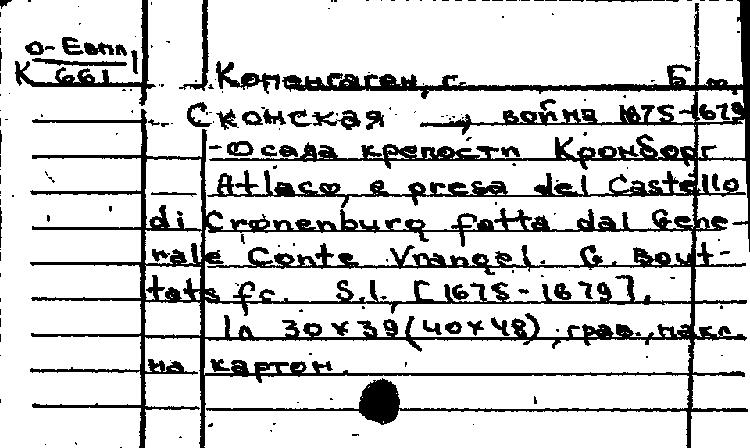 о-Евпл
К 661
Копенгаген, г. Б.м.
Сконская —, война 1675-1679
-Осада крепости Кронборг
Atlaco, e presa del Castello
di Cronenburg fatta dal Gene-
rale Conte Vrangel. G. Bout-
tats fc. S.l., [1675-1679],
1л 30×39(40×48), грав., накл.
на картон.